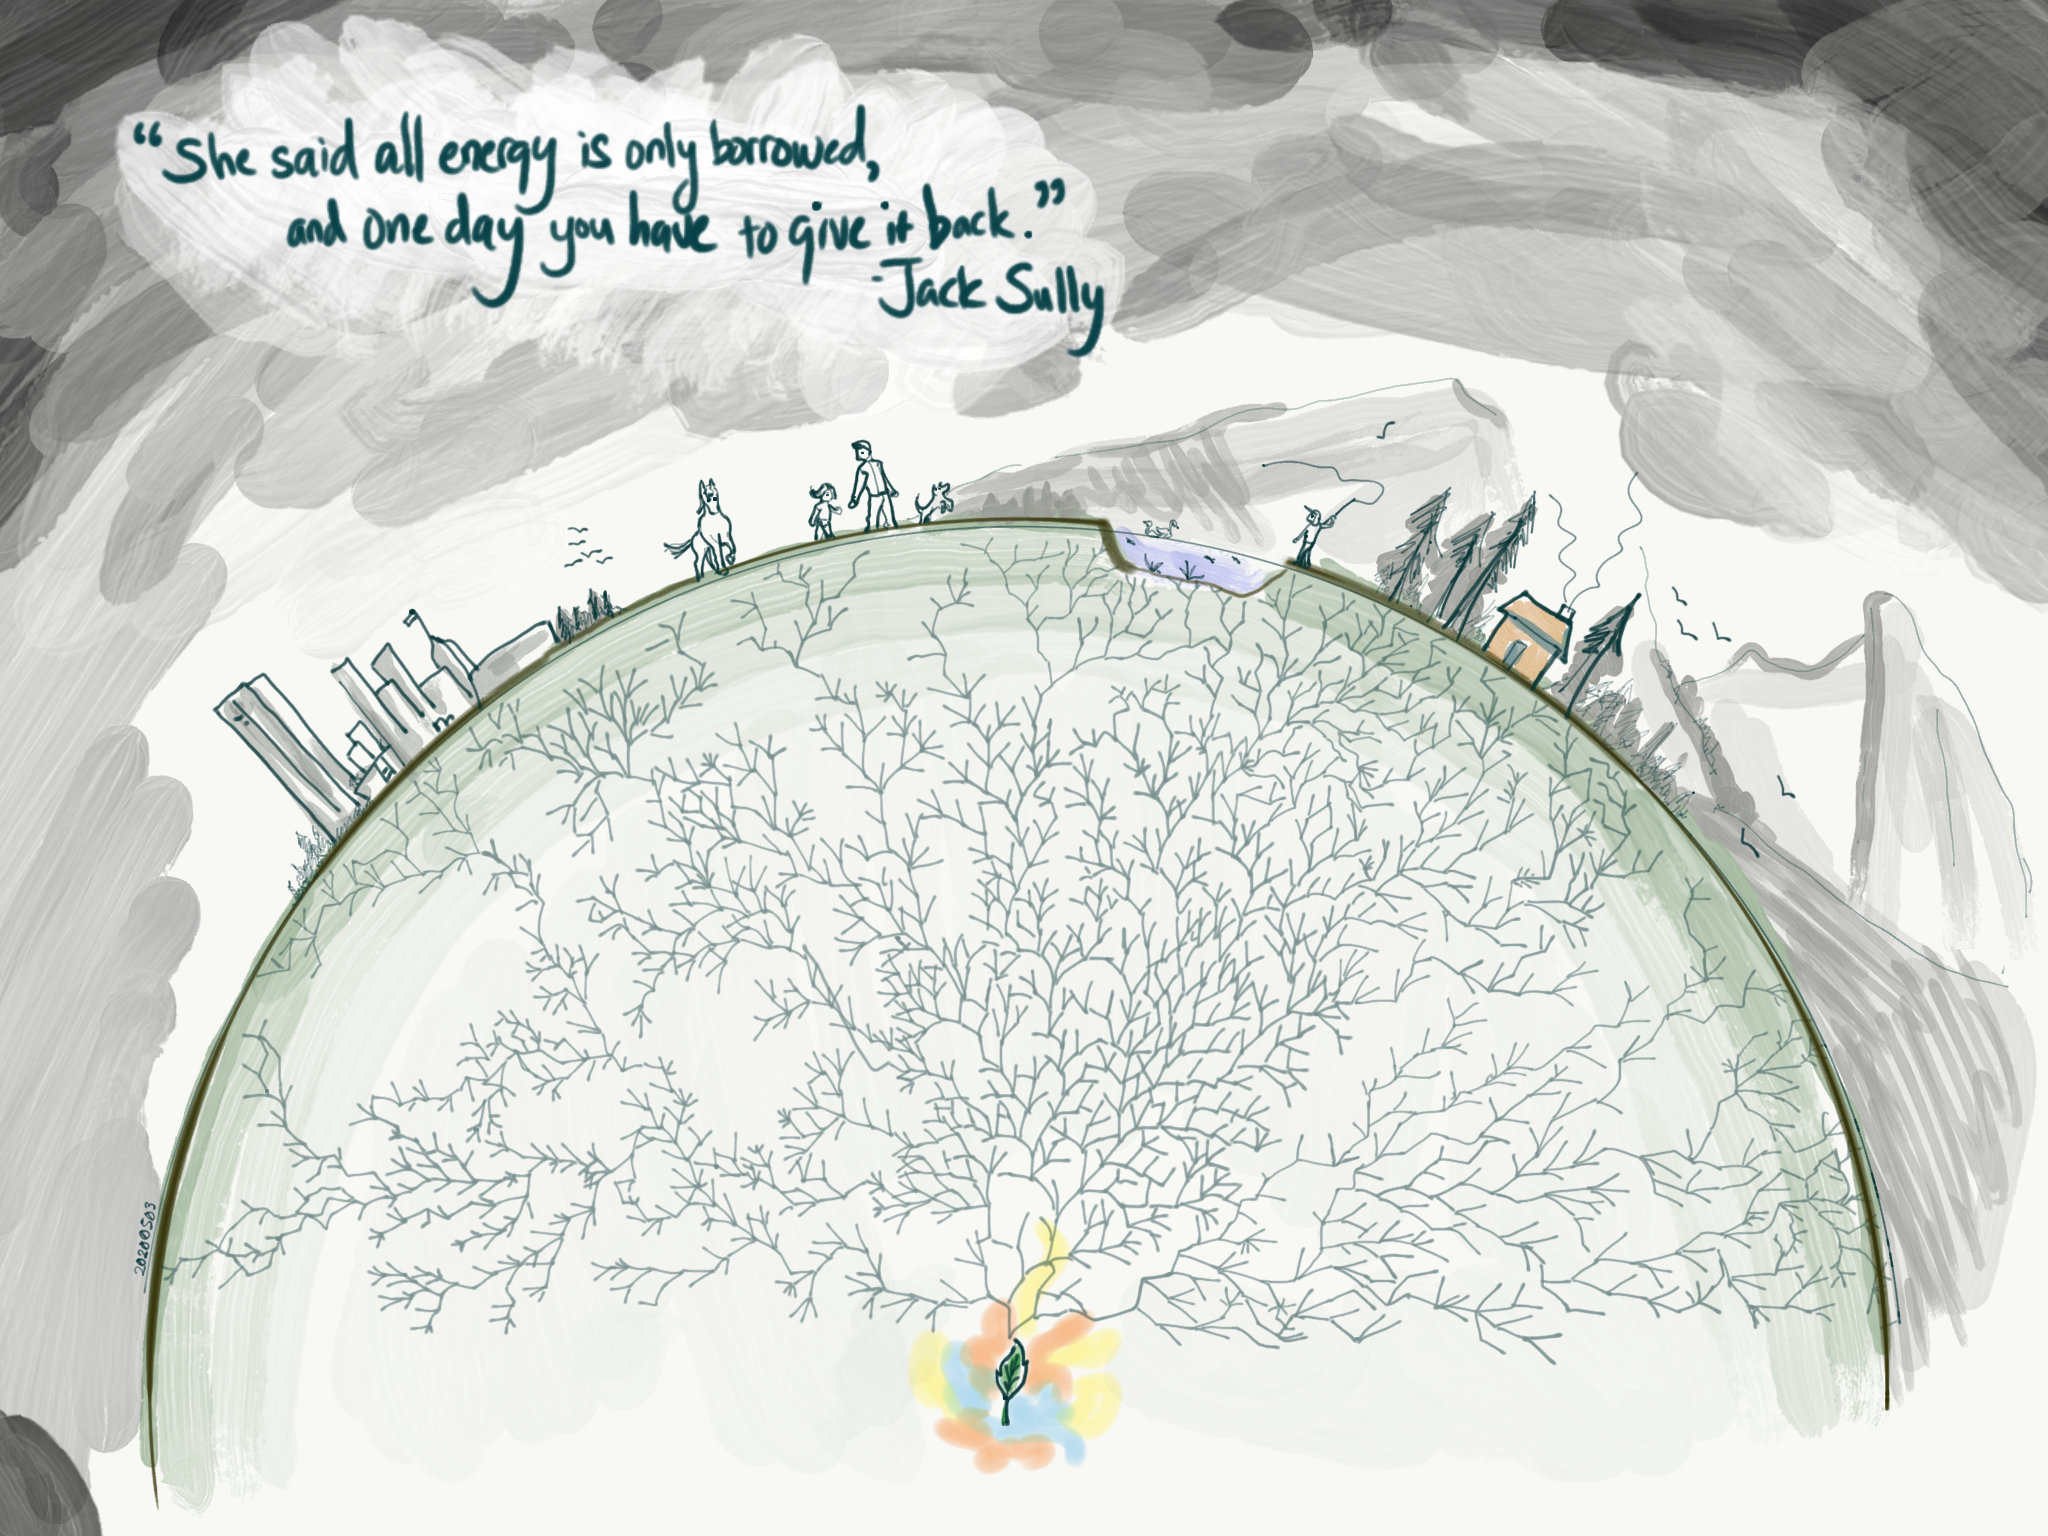 “She said all energy is only borrowed,
and one day you have to give it back.”
-Jack Sully
20200503